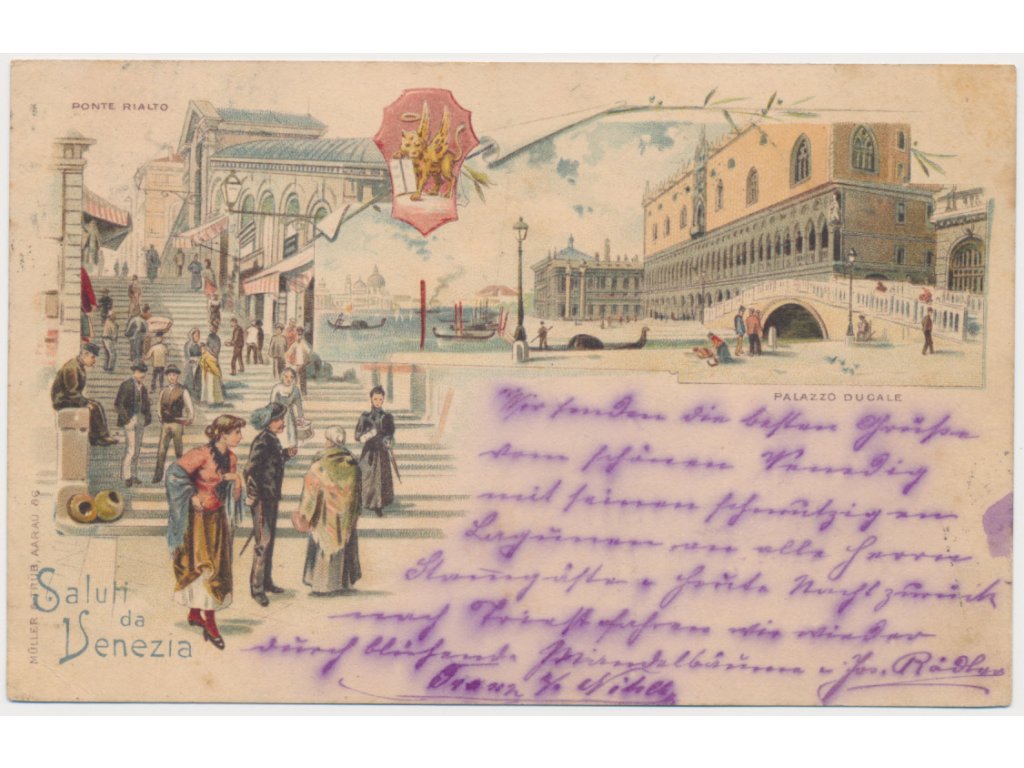 PONTE RIALTO
PALAZZO DUCALE
Wir senden die besten Grüße
vom schönen Venedig
mit seinen schmutzigen
Lagunen an alle Herrn
Stamgäste. Heute Nacht zurück
nach Triest fahren wir wieder
durch blühende Mandelbäume.
Jos. Rädler
Franz
Saluti
da
Venezia
MÜLLER & TRÜB, AARAU 86